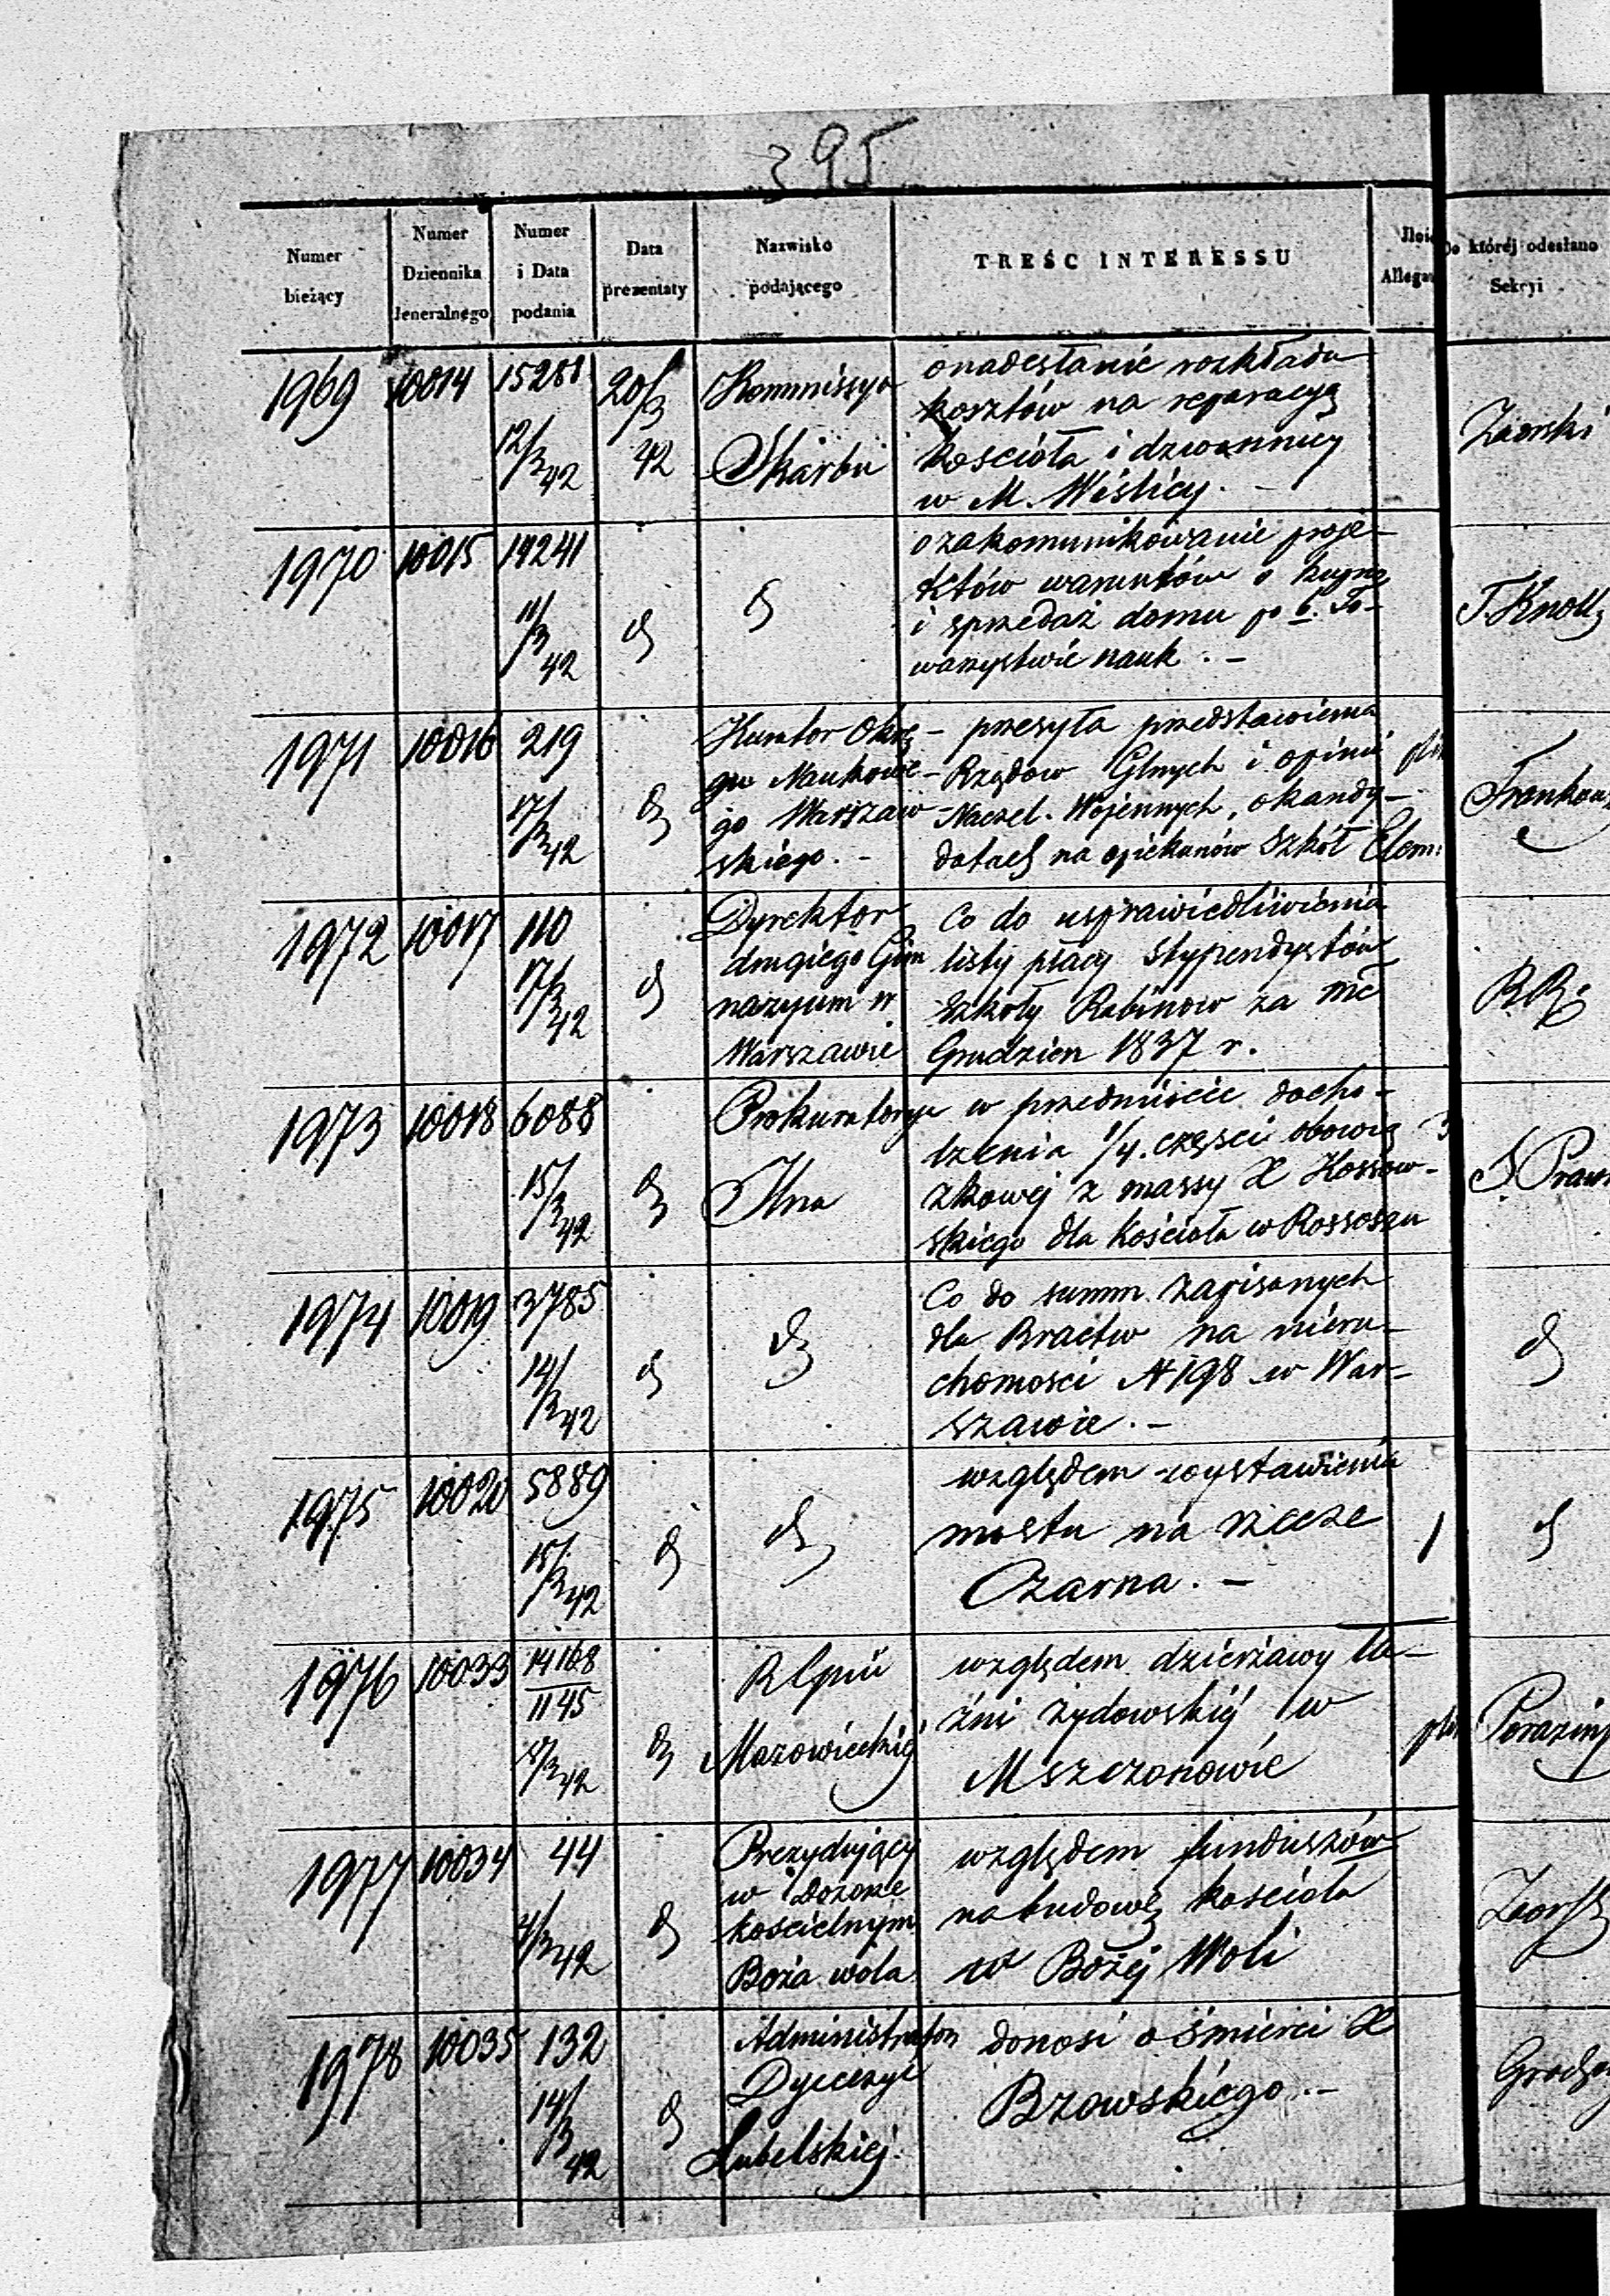 395
Numer bieżący
Numer Dziennika Jeneralnego
Numer i Data podania
Data prezentaty
Nazwisko podającego
TREŚĆ INTERESSU
Do któréj odesłano Sekcyi
1969 10014 15281 12/3 42 20/3 42
Kommissya
Skarbu
o nadesłanie rozkładu
kosztów na reparacyą
kościoła i dzwonnicy
w M. Wiślicy. –
Zaorski
1970 10015 11/3 42
o zakomunikowanie proje-
któw warunków o kupno
i sprzedaż domu po b. To-
warzystwie nauk. –
T. Knoll
1971 10016 219 17/3 42
Kurator Okrę-
gu Naukowe-
go Warszaw-
skiego. –
przesyła przedstawienia
Rządów Glnych i opinii
Naczel. Wojennych, o kandy-
datach na opiekunów szkół Elem:
1972 10017 110 17/3 42
Dyrektor
drugiego Gim
nazyum w
Warszawie
Co do usprawiedliwienia
listy płacy stypendystów
szkoły Rabinow za
Grudzien 1837 r.
1973 10018 6088 15/3 42
Prokuratorya
w przedmiocie docho-
dzenia 1/4 części obowią
zkowej z massy X Kossow-
skiego dla Kościoła w Rossoszu
1974 10019 3785 14/3 42
Co do summ zapisanych
dla Bractw na nieru-
chomosci N 198 w War-
szawie. –
1975 10020 5889 15/3 42
względem wystawienia
mostu na rzece
Czarna. –
1
1976 10033 14168 1145
Mazowieckiéj
względem dzierżawy ła-
źni żydowskiéj w
Mszczonowie
1977 10034 44 4/3 42
Prezydujący
w Dozorze
kościelnym
Boża wola
względem funduszów
na budowę kościoła
w Bożéj Woli
1978 10035 132 14/3 42
Administrator
Dyecezyi
Lubelskiej.
donosi o śmierci X
Bzowskiego. –